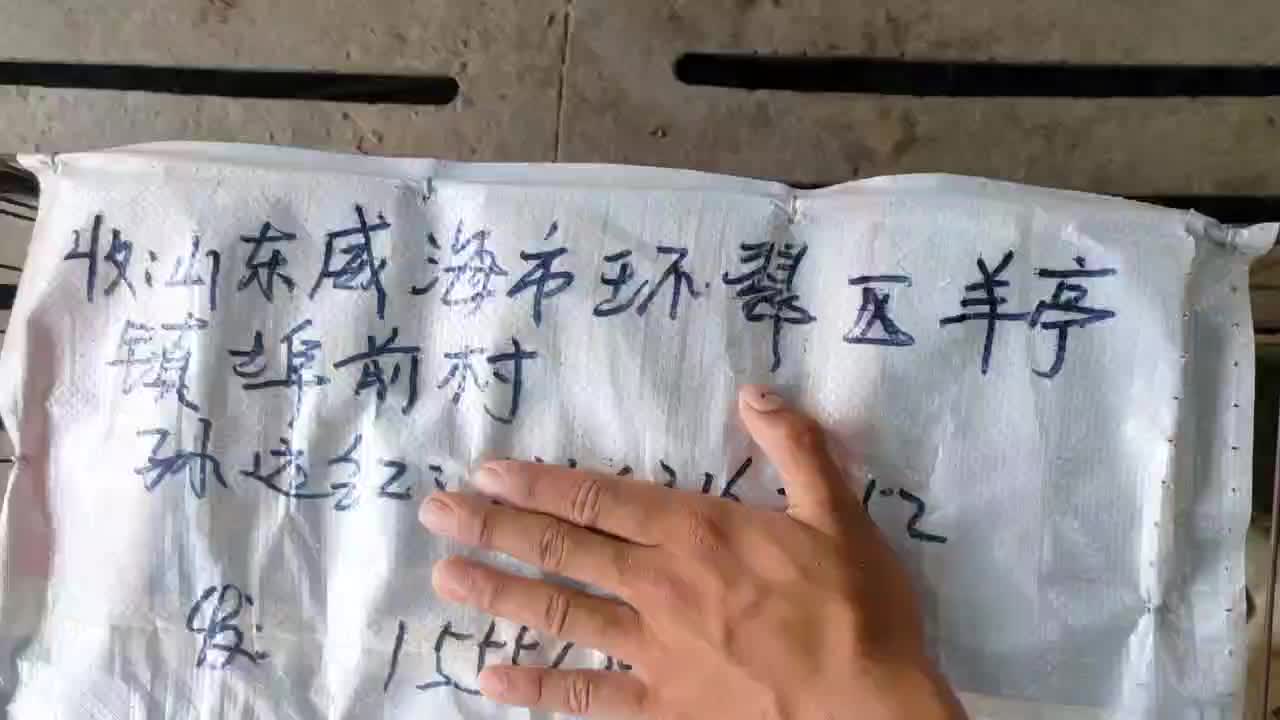 收:山东威海市环翠区羊亭
镇埠前村
孙运红:
发: